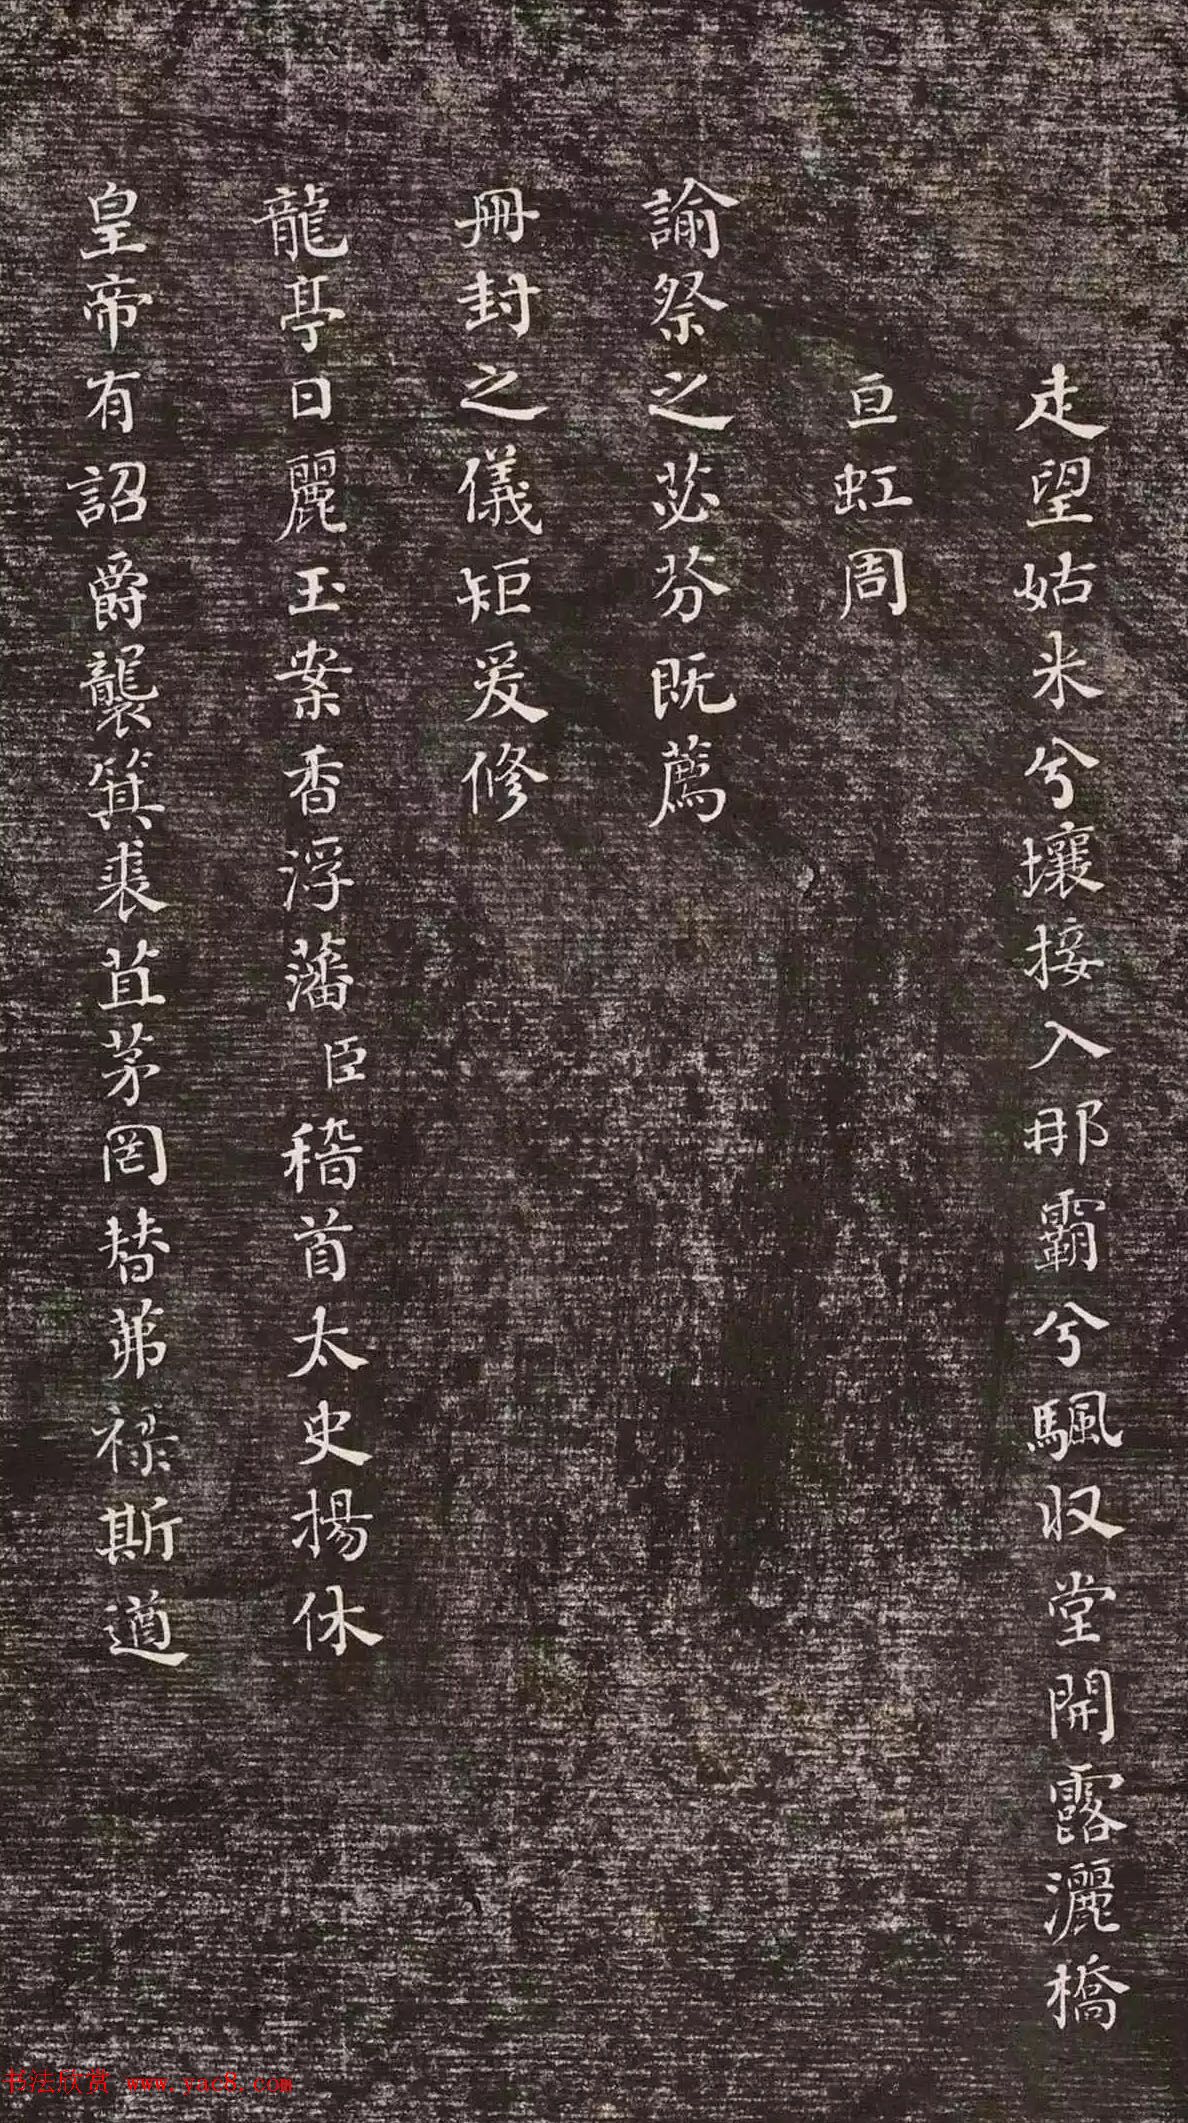 走望姑米兮壤接入那霸兮颿収堂開露灑橋
亘虹周
諭祭之苾芬既薦
冊封之儀矩爰修
龍亭日麗玉案香浮藩臣稽首太史揚休
皇帝有詔爵襲箕裘苴茅罔替茀祿斯遒
书法欣赏 www.yac8.com